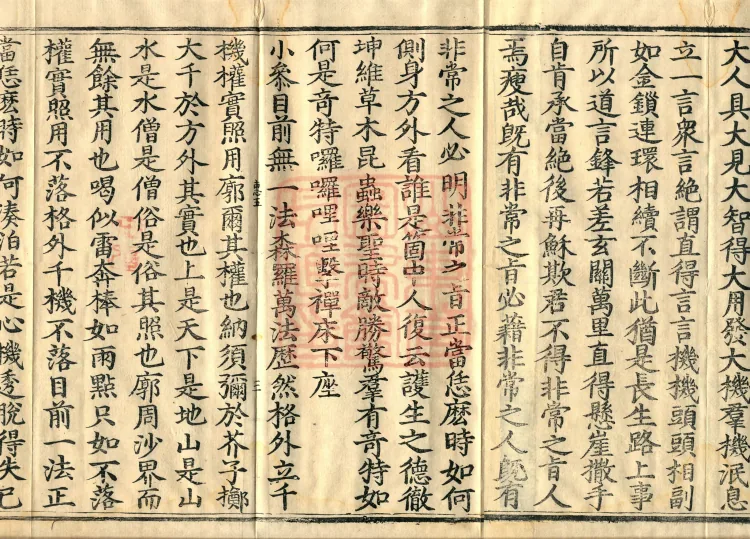 大人具大見大智得大用發大機羣機泯息
立一言衆言絶謂直得言言機機頭頭相副
如金鎖連環相續不斷此猶是長生路上事
所以道言鋒若差玄關萬里直得懸崖撒手
自肯承當絶後再蘇欺君不得非常之㫖人
焉瘦哉既有非常之㫖必藉非常之人既有
非常之人必明非常之㫖正當恁麽時如何
側身方外看誰是箇中人復云護生之德徹
坤維草木昆蟲樂聖時敵勝驚羣有奇特如
何是奇特囉囉哩哩擊禪床下座
小叅目前無一法森羅萬法歴然格外立千
機權實照用廓爾其權也納須彌於芥子擲
大千於方外其實也上是天下是地山是山
水是水僧是僧俗是俗其照也廓周沙界而
無餘其用也喝似雷奔棒如雨點只如不落
權實照用不落格外千機不落目前一法正
當恁麽時如何湊泊若是心機透脫得失已
三